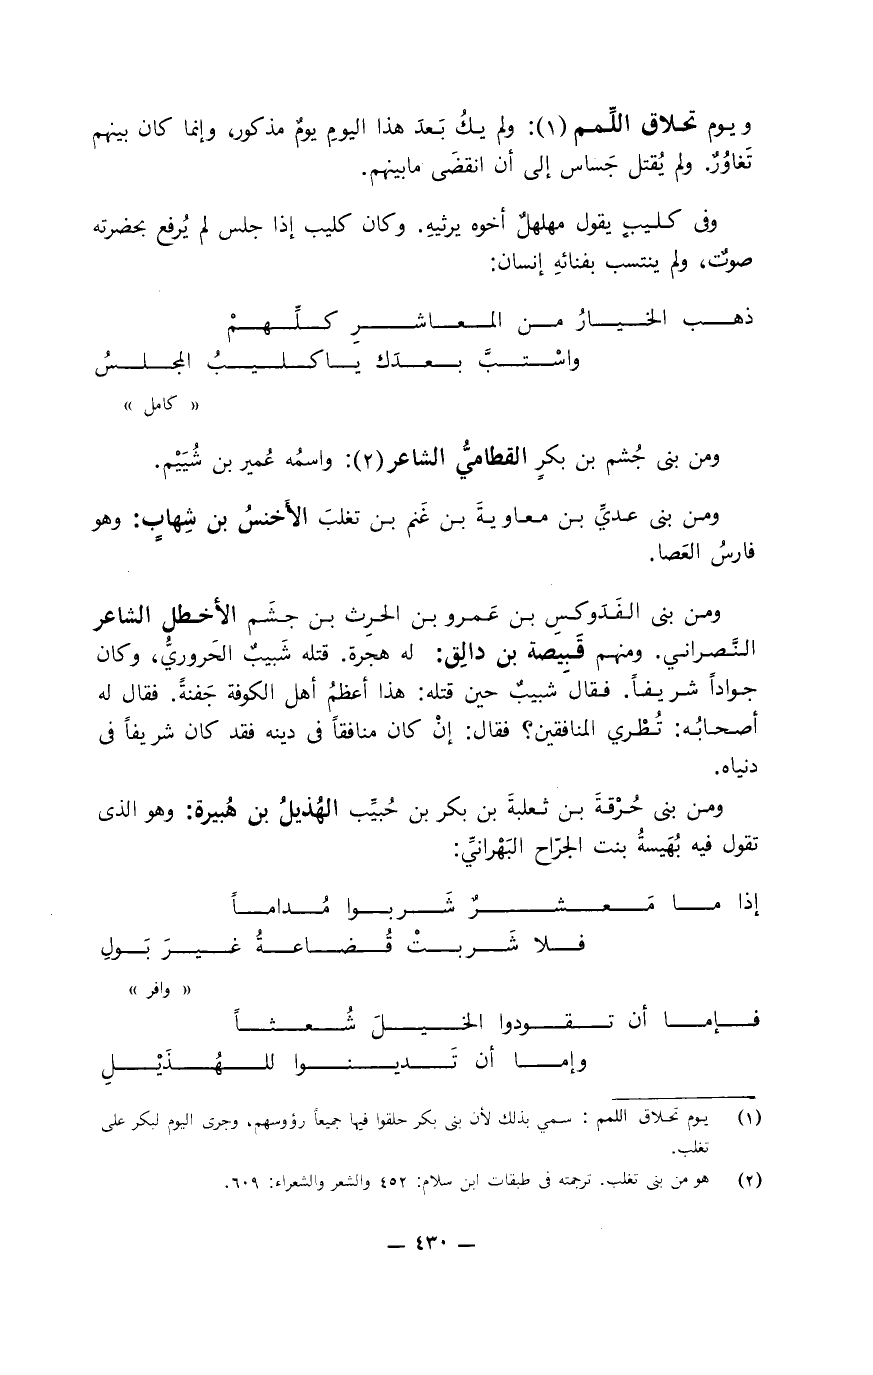 ويوم تحلاق اللِّمم (١): ولم يكُ بَعدَ هذا اليومِ يومٌ مذكور، وإنما كان بينهم
تَغاوُرٌ. ولم يُقتل جَساس إلى أن انقضَى مابينهم.
وفى كليبٍ يقول مهلهلٌ أخوه يرثيهِ. وكان كليب إذا جلس لم يُرفع بحضرته
صوتٌ، ولم ينتسب بفنائهِ إنسان:
ذهب الخيارُ من المعاشرِ كلِّهمْ
واسْتبَّ بعدَك ياكليبُ المجلسُ
« كامل »
ومن بنى جُشم بن بكرٍ القطاميُّ الشاعر (٢): واسمُه عُمير بن شُيَيْم.
ومن بنى عديِّ بن معاويةَ بن غَنم بن تغلبَ الأخنسُ بن شِهابٍ: وهو
فارسُ العَصا.
ومن بنى الفَدَوكسِ بن عَمرو بن الحرِث بن جشَم الأخطل الشاعر
النَّصراني. ومنهم قَبِيصة بن دالِق: له هجرة. قتله شَبيبٌ الحَروريُّ، وكان
جواداً شريفاً. فقال شبيبٌ حين قتله: هذا أعظمُ أهل الكوفة جَفنةً. فقال له
أصحابُه: تُطْري المنافقين؟ فقال: إنْ كان منافقاً فى دينه فقد كان شريفاً فى
دنياه.
ومن بنى حُرْقةَ بن ثعلبةَ بن بكر بن حُبيِّب الهُذيلُ بن هُبيرة: وهو الذى
تقول فيه بُهَيسةُ بنت الجرّاح البَهْرانيِّ:
إذا ما مَعشرٌ شَربوا مُداماً
فلا شَربتْ قُضاعةُ غيرَ بَولِ
« وافر »
فإما أن تقودوا الخيلَ شُعثاً
وإما أن تَدينوا للهُذَيْلِ
(١) يوم تحلاق اللمم : سمي بذلك لأن بنى بكر حلقوا فيها جميعاً رؤوسهم، وجرى اليوم لبكر على
تغلب.
(٢) هو من بنى تغلب. ترجمته فى طبقات ابن سلام: ٤٥٢ والشعر والشعراء: ٦٠٩.
— ٤٣٠ —